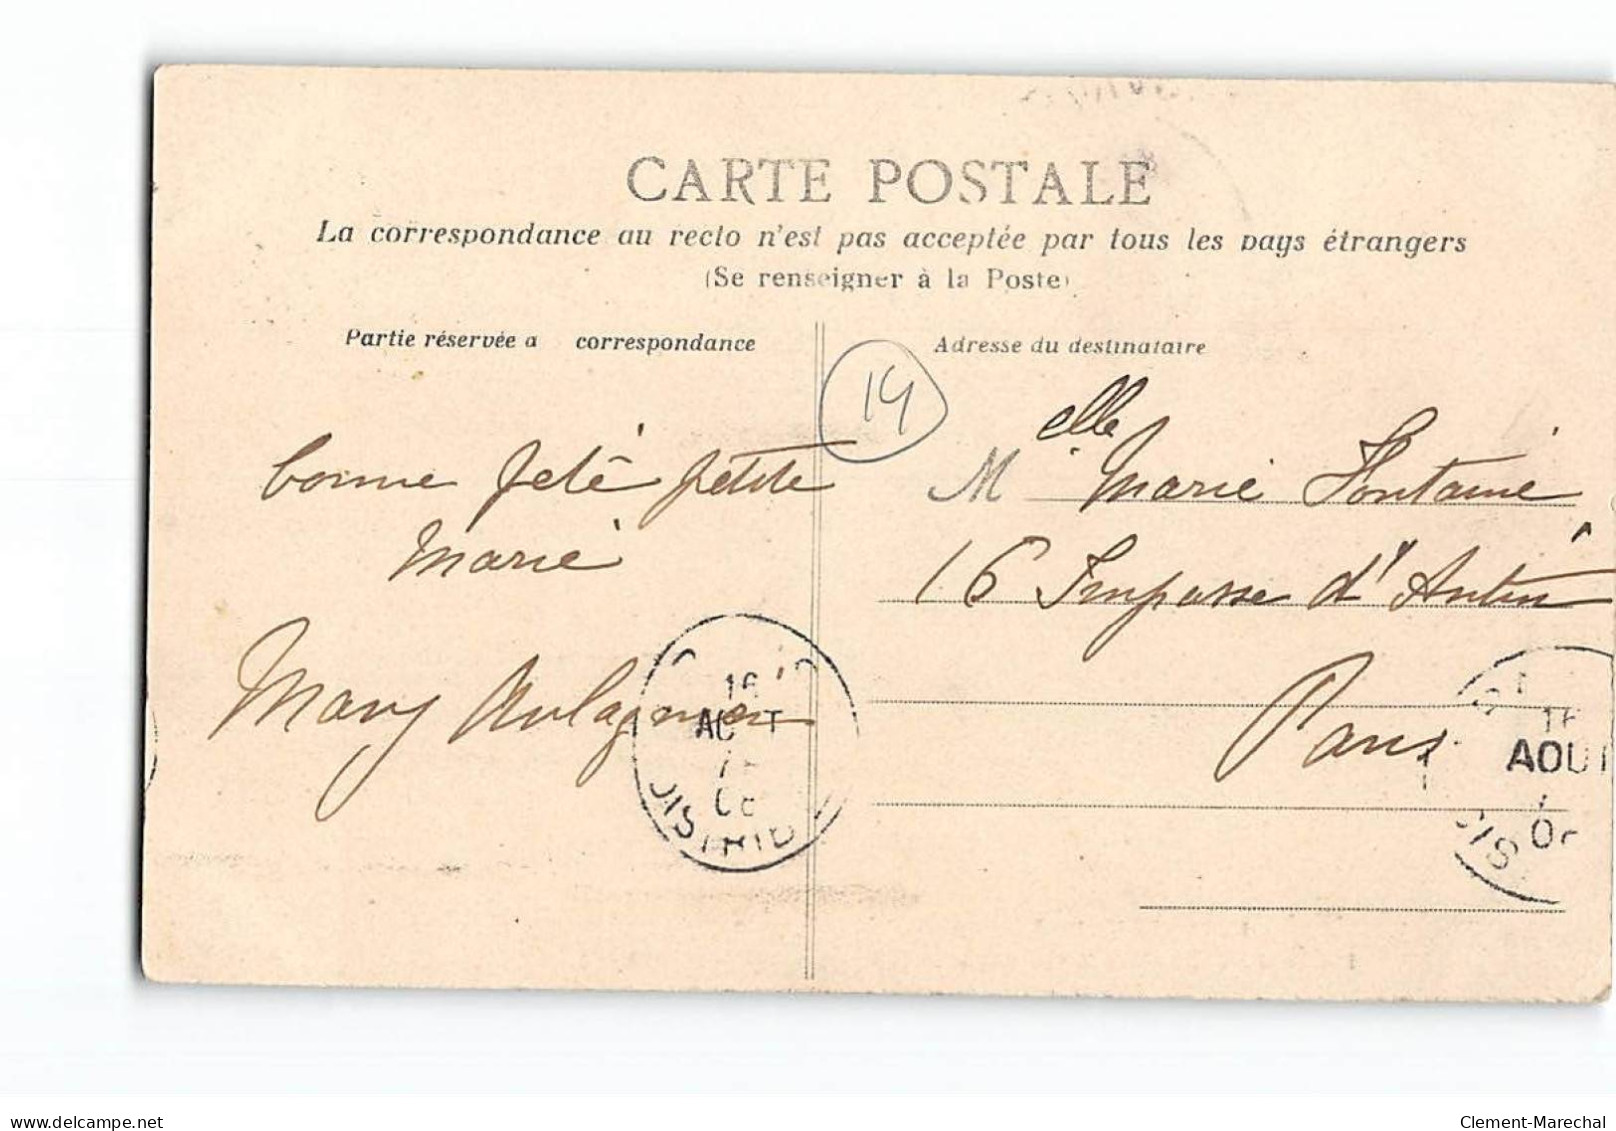 CARTE POSTALE
La correspondance au recto n'est pas acceptée par tous les pays étrangers
(Se renseigner à la Poste)
Partie réservée a correspondance
Adresse du destinataire
14
bonne fete petite
Marie
Mary
Melle Marie Fontaine
16 Impasse d'Antin
Paris
16
AOUT
DISTRIB
16
AOUT
delcampe.net
Clement-Marechal